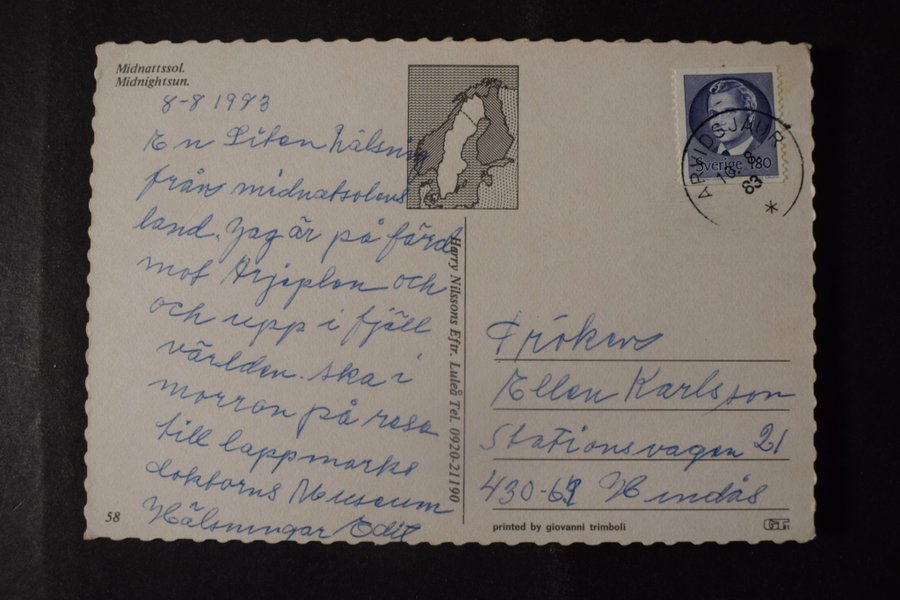 Midnattssol.
Midnightsun.
8-8 1983
En Liten hälsnig
från midnatsolens
land. Jag är på färd
mot Arjeplon och
och upp i fjäll
världen. ska i
morron på resa
till lappmarks
doktorns Museum
Hälsningar Edit
58
Harry Nilssons Eftr. Luleå Tel. 0920-21190
ARVIDSJAUR
8
83
*
Sverige 180
Fröken
Ellen Karlsson
Stationsvagen 21
Hindås
printed by giovanni trimboli